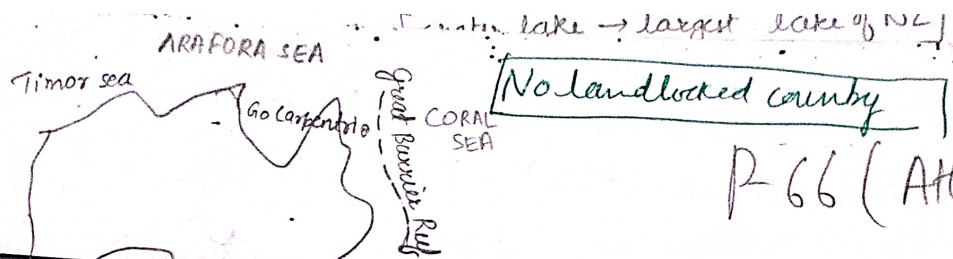 lake → largest lake of NZ]
ARAFORA SEA
Timor sea
Go Carpentria
Great Barrier Reef
CORAL
SEA
No landlocked country
P-66 (AH